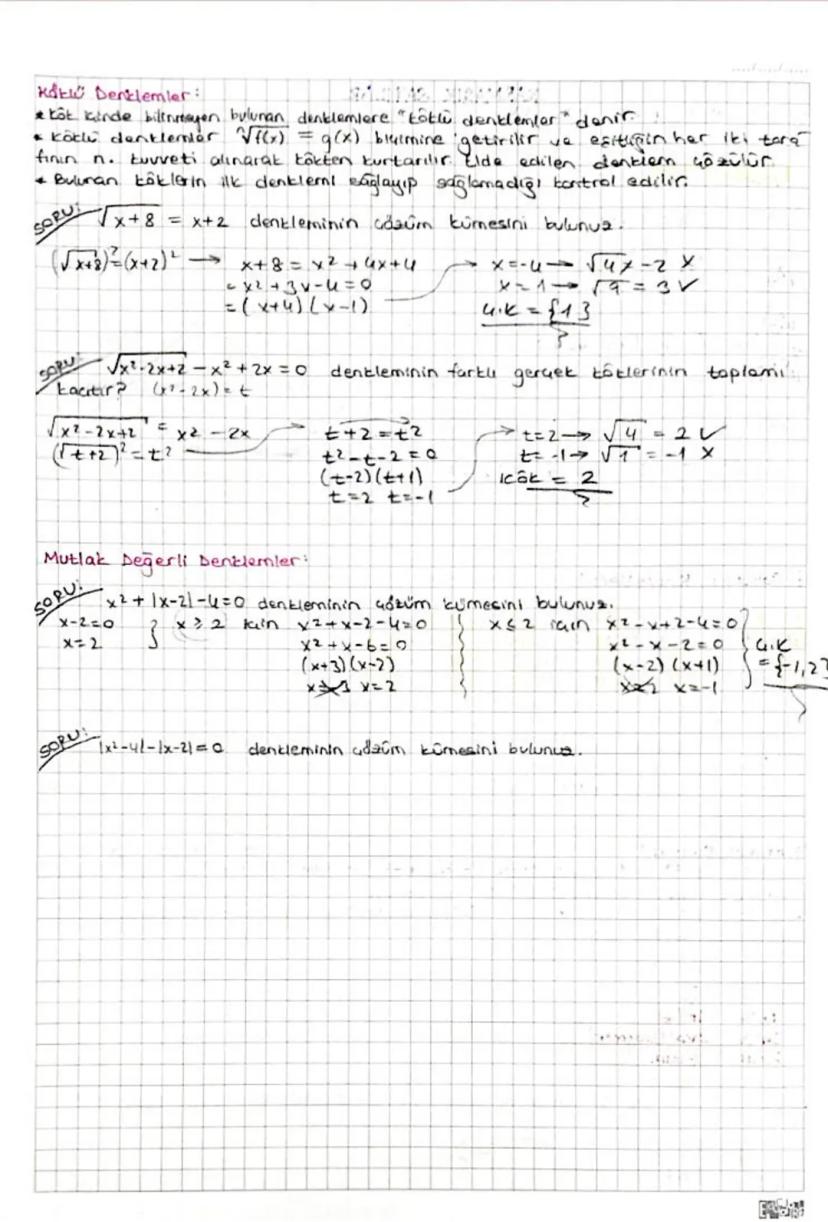 Köklü Denklemler:
* Kök içinde bilinmeyen bulunan denklemlere "köklü denklemler" denir.
* Köklü denklemler ⁿ√f(x) = g(x) biçimine getirilir ve eşitliğin her iki tara
fının n. kuvveti alınarak kökten kurtarılır. Elde edilen denklem çözülür.
* Bulunan köklerin ilk denklemi sağlayıp sağlamadığı kontrol edilir.
SORU: √(x+8) = x+2 denkleminin çözüm kümesini bulunuz.
(√(x+8))² = (x+2)² → x+8 = x² + 4x+4 → x=-4 → √4 ≠ -2 X
= x² + 3x-4=0 x = 1 → √9 = 3 ✓
= (x+4) (x-1) Ç.K = {1}
SORU: √(x²-2x+2) - x² + 2x = 0 denkleminin farklı gerçek köklerinin toplamı
kaçtır? (x²-2x) = t
√(x²-2x+2) = x² - 2x → t+2 = t² → t=2 → √4 = 2 ✓
(√(t+2))² = t² t² - t - 2 = 0 t = -1 → √1 = -1 X
(t-2) (t+1) Kök = 2
t=2 t=-1
Mutlak Değerli Denklemler:
SORU: x² + |x-2| - 4=0 denkleminin çözüm kümesini bulunuz.
x-2=0 } x ≥ 2 için x² + x-2-4=0 x ≤ 2 için x² - x+2-4=0
x=2 x² + x - 6 = 0 x² - x - 2 = 0 Ç.K
(x+3) (x-2) (x-2) (x+1) = {-1,2}
x=-3 x=2 x=2 x=-1
SORU: |x²-4| - |x-2| = 0 denkleminin çözüm kümesini bulunuz.